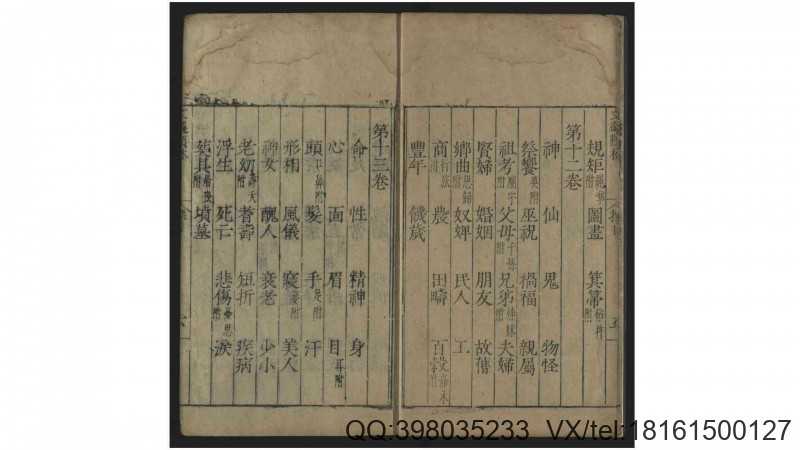 規矩 圖畫 箕箒
第十二卷
神 仙 鬼 物怪
祭饗 巫祝 禍福 親屬
祖考 父母 兄弟 夫婦
賢婦 婚姻 朋友 故舊
鄉曲 奴婢 民人 工
商 農 田疇 百穀
豐年 饑歲
第十三卷
命 性 精神 身
心 面 眉 目耳附
頭 髮 手足附 汗
形相 風儀 寢 美人
神女 醜人 衰老 少小
老幼 耆壽 短折 疾病
浮生 死亡 悲傷 淚
墳墓
QQ:398035233 VX/tel:18161500127